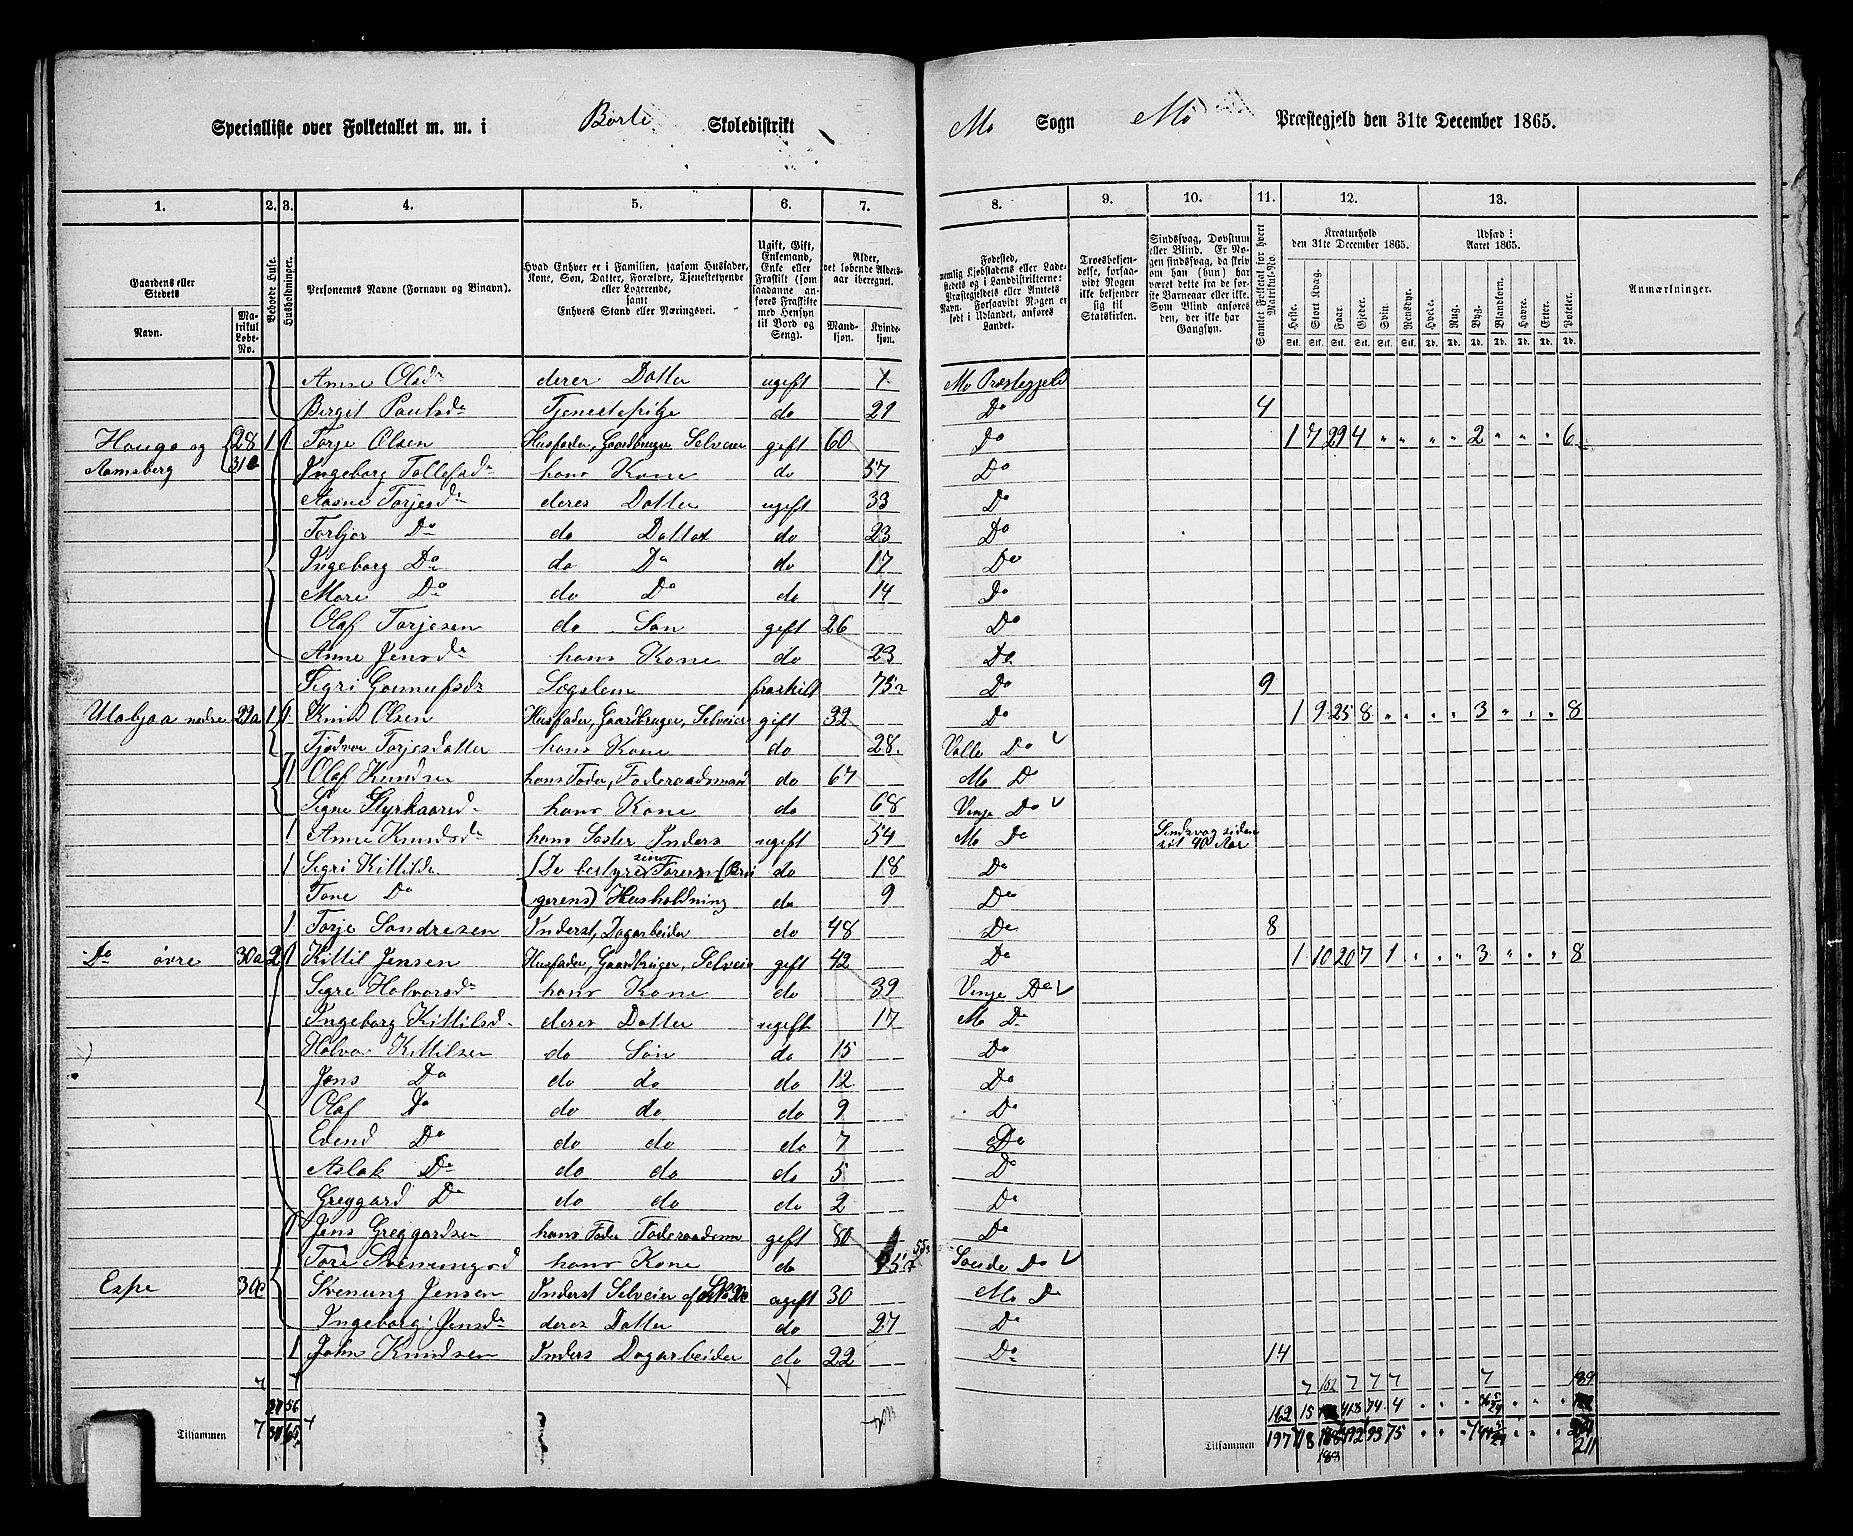 Specialliste over Folketallet m. m. i Børte Skoledistrikt Mo Sogn Mo Præstegjeld den 31te December 1865.
1. 2. 3. 4. 5. 6. 7. 8. 9. 10. 11. 12. 13.
Gaardens eller Stedets Navn. Matrikul Løbe-No. Beboede Huse. Husholdninger. Personernes Navne (Fornavn og Binavn). Hvad Enhver er i Familien, saasom Husfader, Kone, Søn, Datter, Forældre, Tjenestetyende eller Logerende, samt Enhvers Stand eller Næringsvei. Ugift, Gift, Enkemand, Enke eller Fraskilt (som saadanne anføres Fraskilte med Hensyn til Bord og Seng). Alder, det løbende Aldersaar iberegnet. Mandkjøn. Kvindekjøn.
Fødested, nemlig Kjøbstadens eller Ladestedets og i Landdistrikterne: Præstegjeldets eller Amtets Navn. Forsaavidt Nogen er født i Udlandet, anføres Landet. Troesbekjendelse, forsaavidt Nogen ikke bekjender sig til Statskirken. Sindssvag, Døvstum eller Blind. Er Nogen sindssvag, da skriv om han (hun) har været dette fra de første Barneaar eller ikke. Som Blind anføres den, der ikke har Gangsyn. Samlet Folketal for hvert Matrikul-No. Kreaturhold den 31te December 1865. Heste. Stort Kvæg. Faar. Gjeder. Svin. Rensdyr. Udsæd i Aaret 1865. Hvede. Rug. Byg. Blandkorn. Havre. Erter. Poteter. Anmærkninger.
Anne Olsdr deres Datter ugift 1 Mo Præstegjeld
Bergit Paulsdr Tjenestepige do 21 Do 4
Hougo og 28 1 1 Torje Olsen Husfader, Gaardbruger Selveier gift 60 Do 1 7 29 4 " " " " 2 " " " 6
Aamsberg 31 Ingeborg Tollefsdr hans Kone do 57 Do
Aasne Torjesdr deres Datter ugift 33 Do
Torbjør Do do Datter do 23 Do
Ingeborg Do do Do do 17 Do
Mare Do do Do do 14 Do
Olaf Torjesen do Søn gift 26 Do
Anne Jensdr hans Kone do 23 Do
Sigri Gunnufsdr Lægslem fraskilt 75 Do 9
Uabjaa nedre 29a 1 1 Knud Olsen Husfader, Gaardbruger, Selveier gift 32 Do 1 9 25 8 " " " " 3 " " " 8
Tjodvor Torjesdatter hans Kone do 28 Valle Do
1 Olaf Knudsen hans Fader, Føderaadsmand do 67 Mo Do
Signe Styrkaarsdr hans Kone do 68 Vinje Do
1 Anne Knudsdr hans Søster Inders ugift 54 Mo Do Sindsvag siden sit 40 Aar
1 Sigri Kittilsdr (De bestyre sin Foreses (Bru do 18 Do
Tone Do gerens) Husholdning do 9 Do
1 Torje Sondresen Inderst, Dagarbeider do 48 Do 8
Do øvre 30a 2 1 Kittil Jensen Husfader, Gaardbruger, Selveier gift 42 Do 1 10 20 7 1 " " " 3 " " " 8
Sigre Halvorsdr hans Kone do 39 Vinje Do
Ingeborg Kittilsdr deres Datter ugift 17 Mo Do
Halvor Kittilsen do Søn do 15 Do
Jens Do do do do 12 Do
Olaf Do do do do 9 Do
Evend Do do do do 7 Do
Aslak Do do do do 5 Do
Greggard Do do do do 2 Do
1 Jens Greggardsen hans Fader Føderaadsm gift 80 Do
Tore Svenungsd hans Kone do Saude Do
Espe 30c Svenung Jensen Inderst Selveier af ugift 30 Mo Do
Ingeborg Jensdr deres Datter do 27 Do
1 John Knudsen Inders Dagarbeider do 22 Do 14
Tilsammen
Tilsammen 197
211